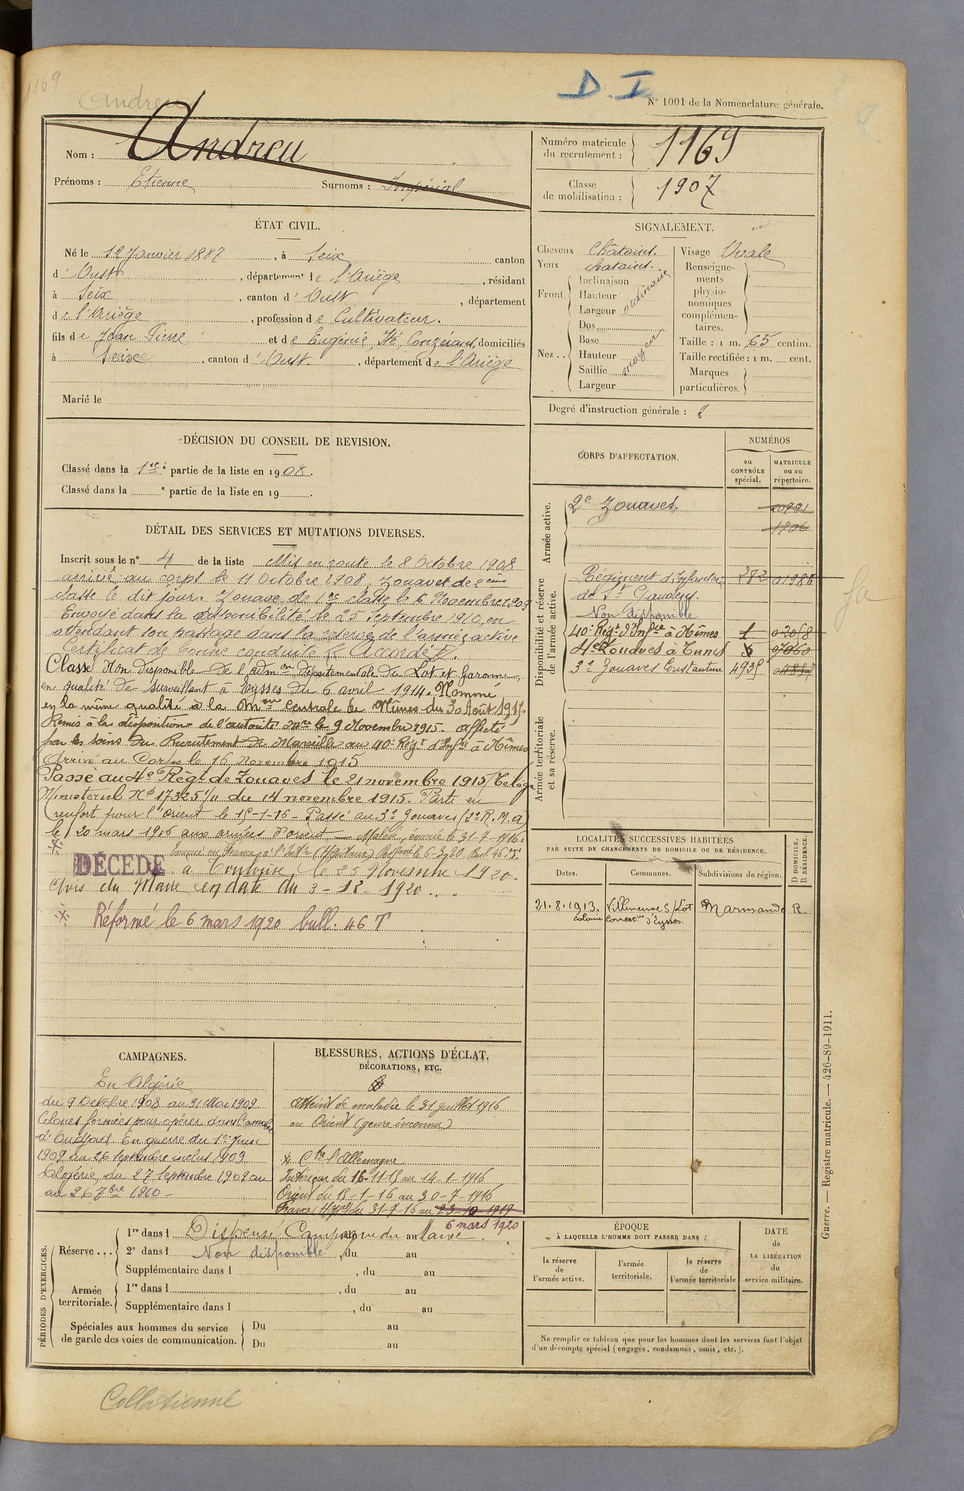 1169
Andreu
D. I
N° 1001 de la Nomenclature générale.
Nom : Andreu
Prénoms : Etienne Surnoms : Impérial
Numéro matricule du recrutement : 1169
Classe de mobilisation : 1907
ÉTAT CIVIL.
Né le 12 Janvier 1887, à Seix canton
d'Oust, département de l'Ariège, résidant
à Seix, canton d'Oust, département
de l'Ariège, profession de Cultivateur.
fils de Jean Pierre et de Eugénie, domiciliés
à Seix, canton d'Oust, département de l'Ariège
Marié le
SIGNALEMENT.
Cheveux Chatains.
Yeux chatains.
Front Inclinaison
Hauteur ordinaire
Largeur
Nez Dos
Base
Hauteur moyen
Saillie
Largeur
Visage Ovale
Renseignements physionomiques complémentaires.
Taille : 1 m. 65 centim.
Taille rectifiée : 1 m. cent.
Marques particulières.
Degré d'instruction générale : 2
DÉCISION DU CONSEIL DE REVISION.
Classé dans la 1ere partie de la liste en 1908.
Classé dans la e partie de la liste en 19 .
DÉTAIL DES SERVICES ET MUTATIONS DIVERSES.
Inscrit sous le n° 4 de la liste Mis en route le 8 Octobre 1908
arrivé au corps le 11 Octobre 1908, Zouave de 2eme
classe le dit jour. Zouave de 1re classe le 6 Novembre 1909
Envoyé dans la disponibilité le 25 Septembre 1910, en
attendant son passage dans la réserve de l'armée active
Certificat de bonne conduite Accordé.
Classé Non disponible de l'Adm.on départementale du Lot et Garonne
en qualité de surveillant à Eysses du 6 avril 1914. Nommé
en la même qualité à la Mon Centrale de Nîmes du 30 Août 1915
Remis à la disposition de l'autorité Mre le 9 Novembre 1915. Affecté
par les soins du Recrutement de Marseille au 40e Régt d'Infie à Nîmes
Arrivé au Corps le 16 novembre 1915
Passé au 4e Régt de Zouaves le 21 novembre 1915
Ministeriel N° 17325 1/11 du 14 novembre 1915. Parti en
renfort pour l'Orient le 15-1-16 - Passé au 3e Zouaves
le 20 mars 1916 aux armées d'Orient — Malade, évacué le 31-7-1916.
DÉCÉDÉ à Toulouse, le 25 Novembre 1920.
Avis du Maire en date du 3-12-1920
Réformé le 6 mars 1920 bull. 46 T
CORPS D'AFFECTATION.
NUMÉROS
au CONTRÔLE spécial.
MATRICULE ou au répertoire.
Armée active.
2e Zouaves.
Disponibilité et réserve de l'armée active.
Régiment d'Infanterie 382
de St Gaudens
Non disponible
40e Régt d'Infie à Nîmes 1
4e Zouaves à Tunis
3e Zouaves Constantine
Armée territoriale et sa réserve.
LOCALITÉS SUCCESSIVES HABITÉES
PAR SUITE DE CHANGEMENTS DE DOMICILE OU DE RÉSIDENCE.
Dates. Communes. Subdivisions de région. D DOMICILE. R RÉSIDENCE.
21.8.1913. Villeneuve s/Lot Marmande R.
Colonie Correct.lle d'Eysses.
CAMPAGNES.
En Algérie
du 9 Octobre 1908 au 31 Mai 1909
Colonnes formées pour opérer dans l'annexe
d'Oudjda En guerre du 1er Juin
1909 au 26 Septembre inclus 1909
Algérie, du 27 Septembre 1909 au
au 26 7bre 1910 -
BLESSURES, ACTIONS D'ÉCLAT,
DÉCORATIONS, ETC.
Atteint de maladie le 31 juillet 1916
en Orient (genre inconnu)
Cte l'Allemagne
Intérieur du 16-11-15 au 14-1-1916
Orient du 15-1-16 au 30-7-1916
France du 31-7-16 au 23-10-1919
6 mars 1920
PÉRIODES D'EXERCICES.
Réserve... 1re dans l Dispensé Campagne du au Maroc.
2e dans l Non disponible, du au
Supplémentaire dans l , du au
Armée territoriale. 1re dans l , du au
Supplémentaire dans l , du au
Spéciales aux hommes du service de garde des voies de communication. Du au
Du au
ÉPOQUE
À LAQUELLE L'HOMME DOIT PASSER DANS :
la réserve de l'armée active.
l'armée territoriale.
la réserve de l'armée territoriale
DATE DE LA LIBÉRATION du service militaire.
Ne remplir ce tableau que pour les hommes dont les services font l'objet
d'un décompte spécial (engagés, condamnés, omis, etc.).
Guerre. — Registre matricule. — 426-89-1911.
Collationné